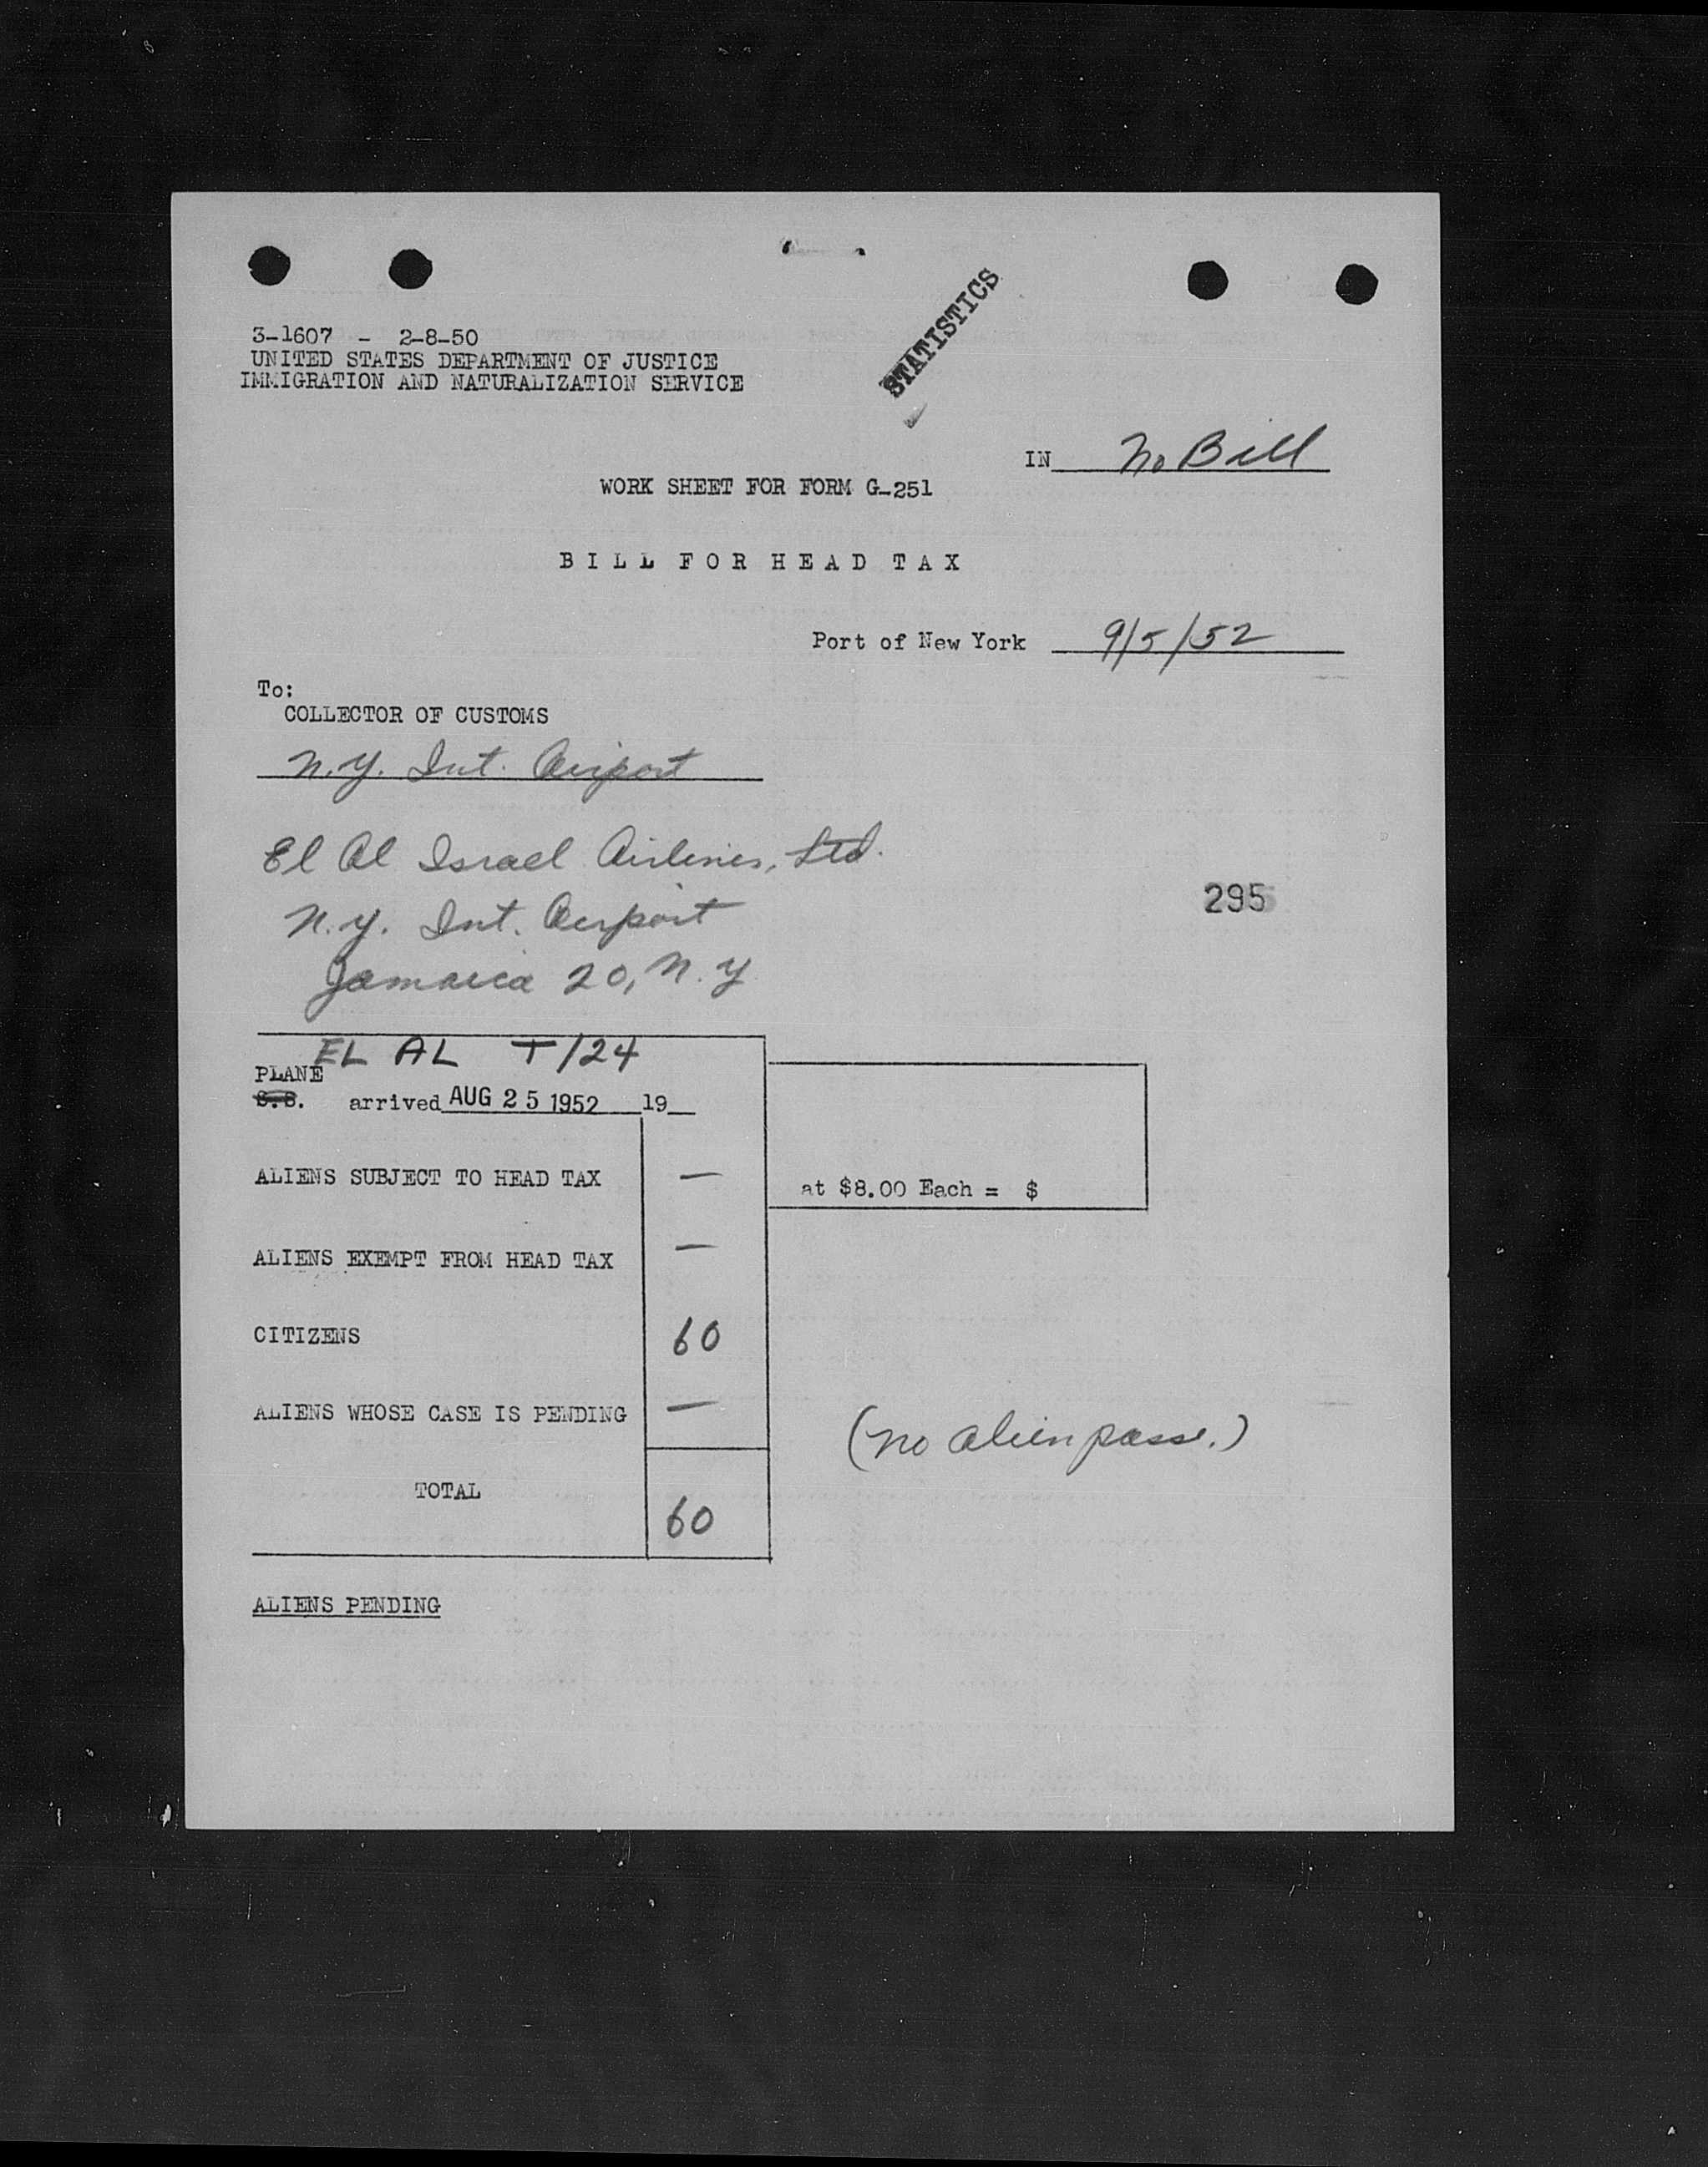 STATISTICS
3-1607 - 2-8-50
UNITED STATES DEPARTMENT OF JUSTICE
IMMIGRATION AND NATURALIZATION SERVICE
IN No Bill
WORK SHEET FOR FORM G-251
BILL FOR HEAD TAX
Port of New York 9/5/52
To:
COLLECTOR OF CUSTOMS
N.Y. Int. Airport
El Al Israel Airlines, Ltd.
N.Y. Int. Airport
295
Jamaica 20, N.Y
EL AL T/24
PLANE
S.S. arrived AUG 25 1952 19
ALIENS SUBJECT TO HEAD TAX —
at $8.00 Each = $
ALIENS EXEMPT FROM HEAD TAX —
CITIZENS 60
ALIENS WHOSE CASE IS PENDING —
(no alien pass.)
TOTAL 60
ALIENS PENDING